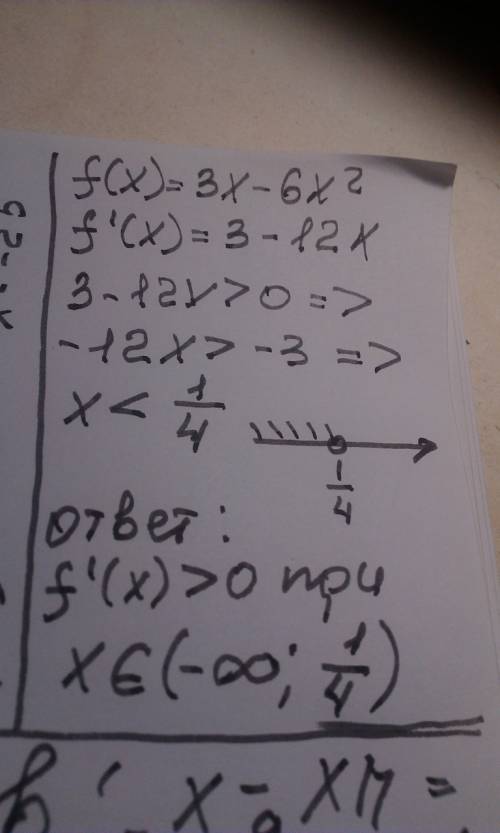 f(x)=3x-6x²
f'(x)=3-12x
3-12x>0 =>
-12x>-3 =>
x< 1/4
1/4
ответ:
f'(x)>0 при
x∈(-∞; 1/4)